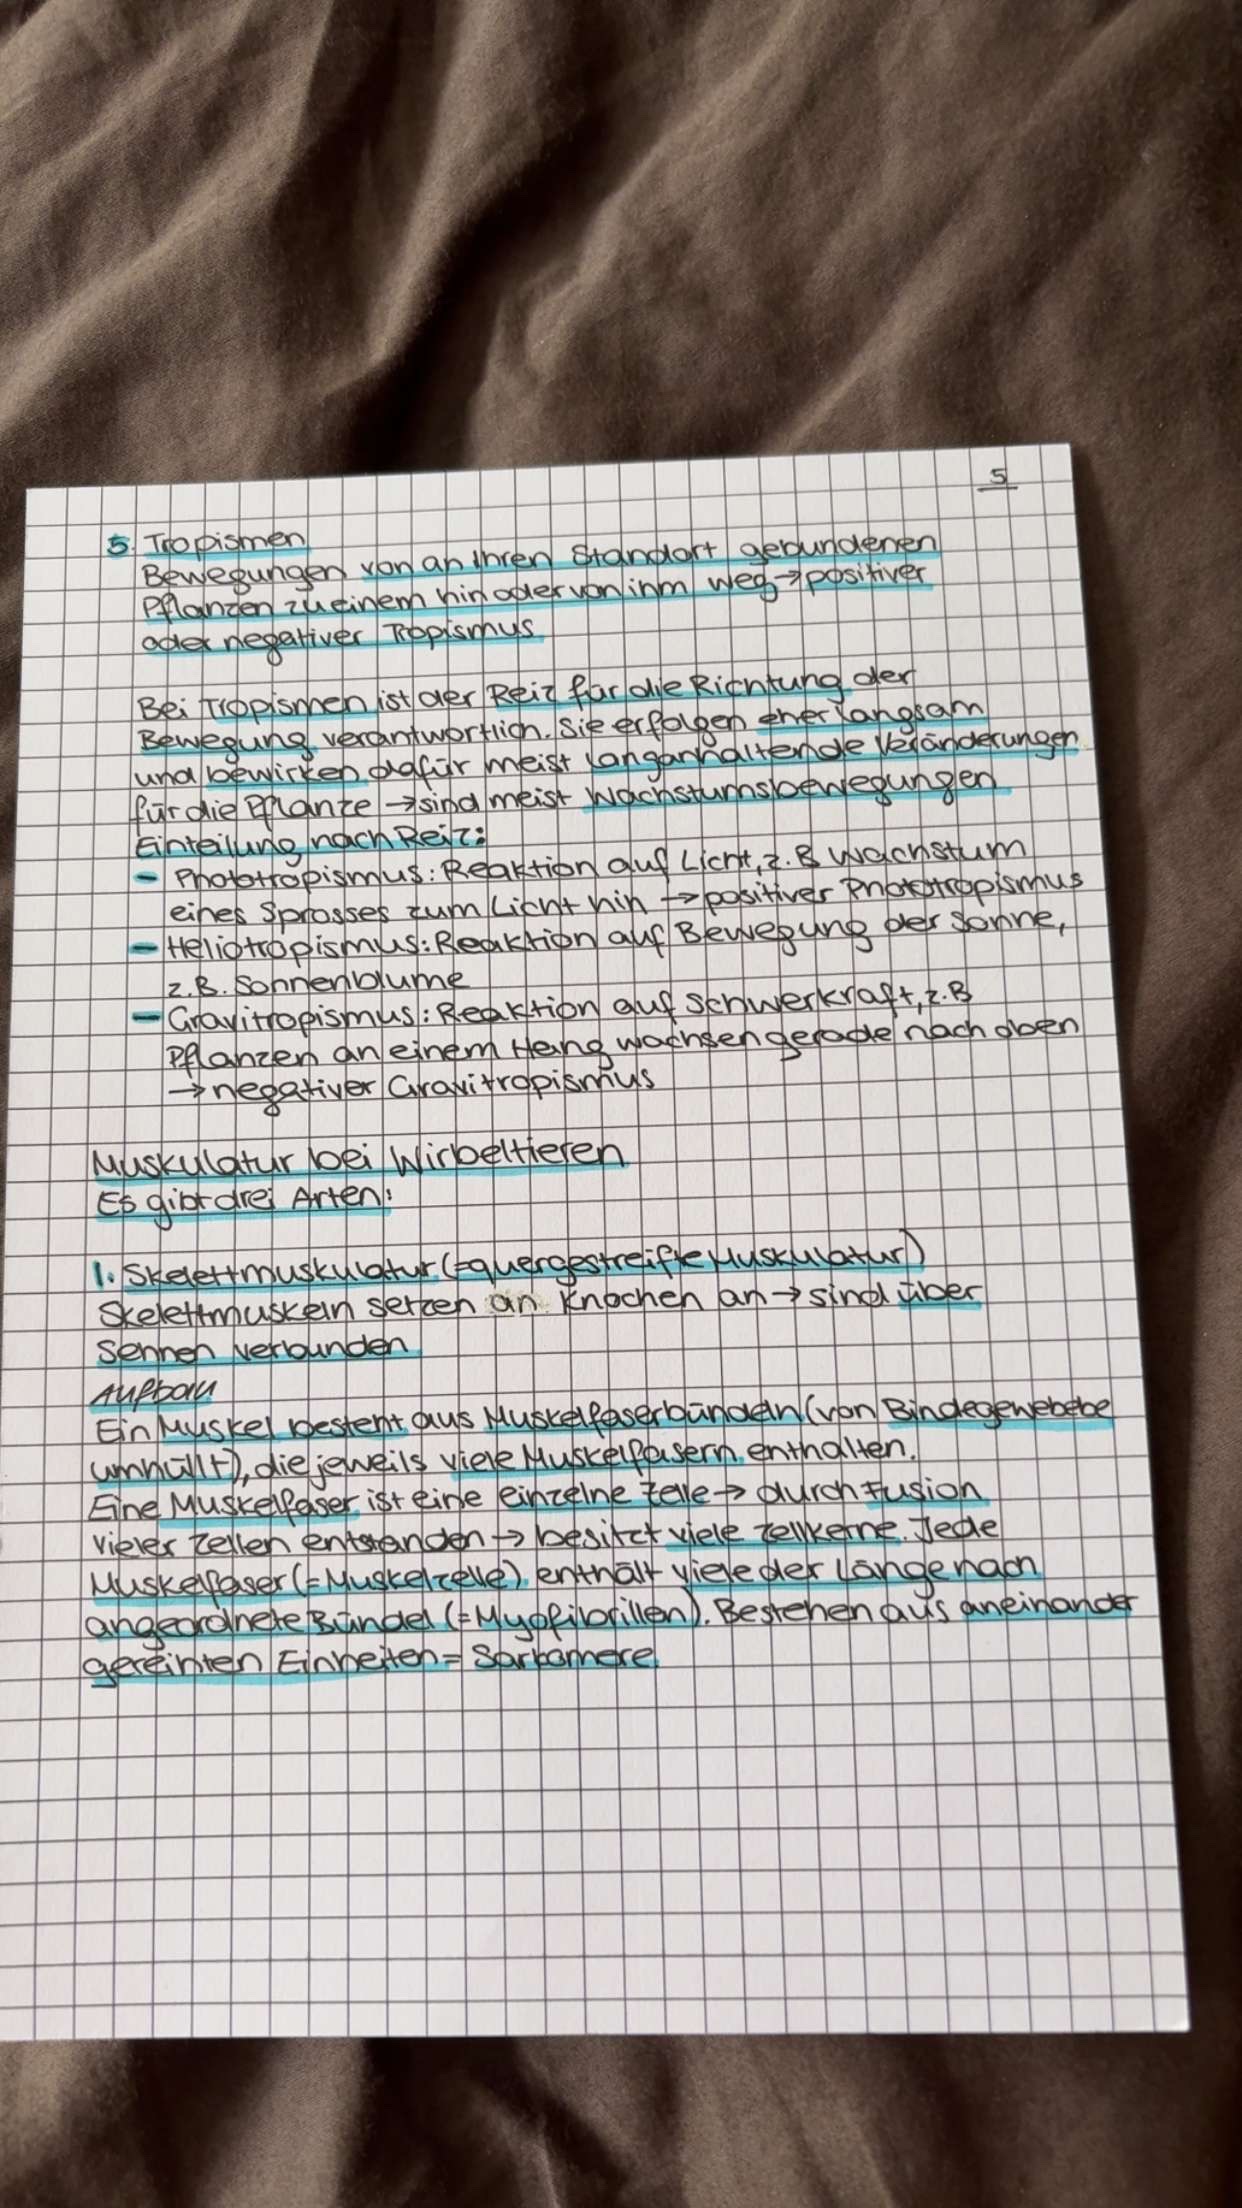 5
5. Tropismen
Bewegungen von an Ihren Standort gebundenen
Pflanzen zu einem hin oder von ihm weg → positiver
oder negativer Tropismus
Bei Tropismen ist der Reiz für die Richtung der
Bewegung verantwortlich. Sie erfolgen eher langsam
und bewirken dafür meist langanhaltende Veränderungen
für die Pflanze → sind meist Wachstumsbewegungen
Einteilung nach Reiz:
- Phototropismus: Reaktion auf Licht, z.B Wachstum
eines Sprosses zum Licht hin → positiver Phototropismus
- Heliotropismus: Reaktion auf Bewegung der Sonne,
z.B. Sonnenblume
- Gravitropismus: Reaktion auf Schwerkraft, z.B
Pflanzen an einem Hang wachsen gerade nach oben
→ negativer Gravitropismus
Muskulatur bei Wirbeltieren
Es gibt drei Arten:
1. Skelettmuskulatur (=quergestreifte Muskulatur)
Skelettmuskeln setzen an Knochen an → sind über
Sehnen verbunden
Aufbau
Ein Muskel besteht aus Muskelfaserbündeln (von Bindegewebebe
umhüllt), die jeweils viele Muskelfasern enthalten.
Eine Muskelfaser ist eine einzelne Zelle → durch Fusion
vieler Zellen entstanden → besitzt viele Zellkerne. Jede
Muskelfaser (=Muskelzelle) enthält viele der Länge nach
angeordnete Bündel (=Myofibrillen). Bestehen aus aneinander
gereihten Einheiten = Sarkomere